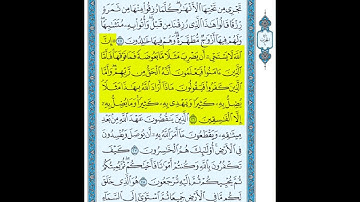 تَجْرِي مِن تَحْتِهَا الْأَنْهَارُ كُلَّمَا رُزِقُوا مِنْهَا مِن ثَمَرَةٍ
رِّزْقًا قَالُوا هَٰذَا الَّذِي رُزِقْنَا مِن قَبْلُ وَأُتُوا بِهِ مُتَشَابِهًا
وَلَهُمْ فِيهَا أَزْوَاجٌ مُّطَهَّرَةٌ وَهُمْ فِيهَا خَالِدُونَ ۝ إِنَّ
اللَّهَ لَا يَسْتَحْيِي أَن يَضْرِبَ مَثَلًا مَّا بَعُوضَةً فَمَا فَوْقَهَا فَأَمَّا
الَّذِينَ آمَنُوا فَيَعْلَمُونَ أَنَّهُ الْحَقُّ مِن رَّبِّهِمْ وَأَمَّا
الَّذِينَ كَفَرُوا فَيَقُولُونَ مَاذَا أَرَادَ اللَّهُ بِهَٰذَا مَثَلًا
يُضِلُّ بِهِ كَثِيرًا وَيَهْدِي بِهِ كَثِيرًا وَمَا يُضِلُّ بِهِ
إِلَّا الْفَاسِقِينَ ۝ الَّذِينَ يَنقُضُونَ عَهْدَ اللَّهِ مِن بَعْدِ
مِيثَاقِهِ وَيَقْطَعُونَ مَا أَمَرَ اللَّهُ بِهِ أَن يُوصَلَ وَيُفْسِدُونَ
فِي الْأَرْضِ أُولَٰئِكَ هُمُ الْخَاسِرُونَ ۝ كَيْفَ
تَكْفُرُونَ بِاللَّهِ وَكُنتُمْ أَمْوَاتًا فَأَحْيَاكُمْ ثُمَّ يُمِيتُكُمْ
ثُمَّ يُحْيِيكُمْ ثُمَّ إِلَيْهِ تُرْجَعُونَ ۝ هُوَ الَّذِي خَلَقَ
لَكُم مَّا فِي الْأَرْضِ جَمِيعًا ثُمَّ اسْتَوَىٰ إِلَى السَّمَاءِ